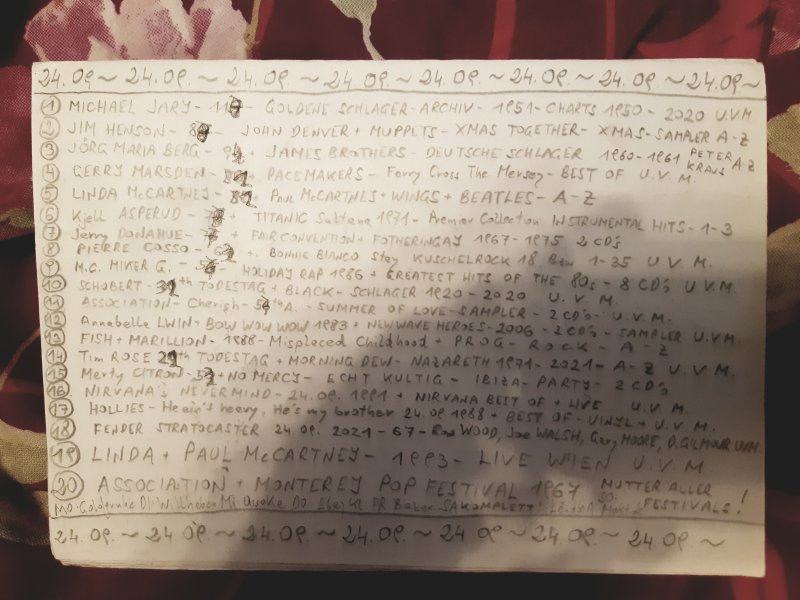 24.09. ~ 24.09. ~ 24.09. ~ 24.09. ~ 24.09. ~ 24.09. ~ 24.09. ~ 24.09. ~
1 MICHAEL JARY - - GOLDENE SCHLAGER-ARCHIV - 1951 - CHARTS 1950 - 2020 U.V.M.
2 JIM HENSON - - JOHN DENVER + MUPPETS - XMAS TOGETHER - XMAS-SAMPLER A-Z
3 JÖRG MARIA BERG - + JAMES BROTHERS - DEUTSCHE SCHLAGER 1960-1961 PETER KRAUS A-Z
4 GERRY MARSDEN - + PACEMAKERS - Ferry Cross The Mersey - BEST OF U.V.M.
5 LINDA McCARTNEY - + PAUL McCARTNEY + WINGS + BEATLES - A-Z
6 Kjell ASPERUD - + TITANIC Sultana 1971 - Premier Collection INSTRUMENTAL HITS - 1-3
7 Jerry DONAHUE - + FAIRCONVENTION + FOTHERINGAY 1967-1975 2 CD's
8 PIERRE COSSO - +. BONNIE BIANCO Stay KUSCHELROCK 18 Bzw 1-35 U.V.M.
9 M.C. MIKER G. - - HOLIDAY RAP 1986 + GREATEST HITS OF THE 80s - 8 CD's U.V.M.
10 SCHOBERT - TODESTAG + BLACK - SCHLAGER 1920-2020 U.V.M.
11 ASSOCIATION - Cherish - A. - SUMMER OF LOVE - SAMPLER - 2 CD's - U.V.M.
12 Annabelle LWIN + BOW WOW WOW 1983 + NEW WAVE HEROES - 2006 - 2 CD's - SAMPLER U.V.M.
13 FISH + MARILLION - 1988 - Misplaced Childhood + PROG - ROCK - A-Z
14 Tim ROSE TODESTAG + MORNING DEW - NAZARETH 1971-2021 - A-Z U.V.M.
15 Merty CITRON - + NO MERCY - ECHT KULTIG - IBIZA - PARTY - 2 CD's
16 NIRVANA's NEVERMIND - 24.09.1991 + NIRVANA BEST OF + LIVE U.V.M.
17 HOLLIES - He ain't heavy, He's my brother 24.09 1988 + BEST OF - VINYL + U.V.M.
18 FENDER STRATOCASTER 24.09. 2021 - 67 - Ron WOOD, Joe WALSH, Gary MOORE, D.GILMOUR UVM
19 LINDA + PAUL McCARTNEY - 1993 - LIVE WIEN U.V.M
20 ASSOCIATION + MONTEREY POP FESTIVAL 1967 MUTTER ALLER
FESTIVALS!
MO DI Mi DO FR SA KOMPLETT!
24.09. ~ 24.09. ~ 24.09. ~ 24.09. ~ 24.09 ~ 24.09. ~ 24.09 ~